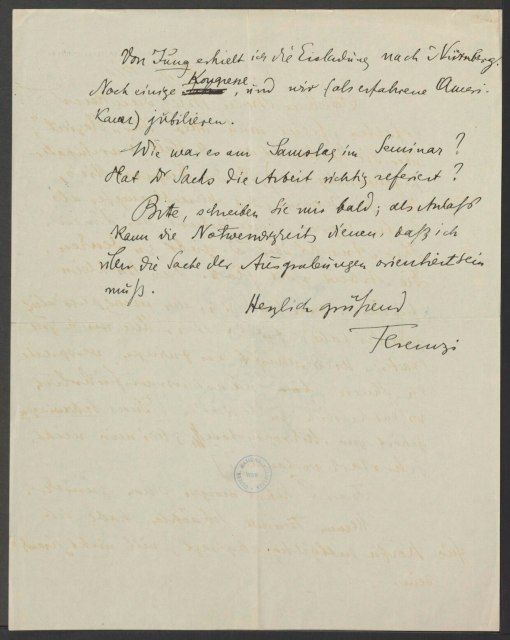 Von Jung erhielt ich die Einladung nach Nürnberg.
Noch einige Kongresse, und wir (als erfahrene Ameri-
kaner) jubilieren.
Wie war es am Samstag im Seminar?
Hat Dr Sachs die Arbeit richtig referiert?
Bitte, schreiben Sie mir bald; als Anlaß
kann die Notwendigkeit dienen, daß ich
über die Sache der Ausgrabungen orientiert sein
muß.
Herzlich grüßend
Ferenczi